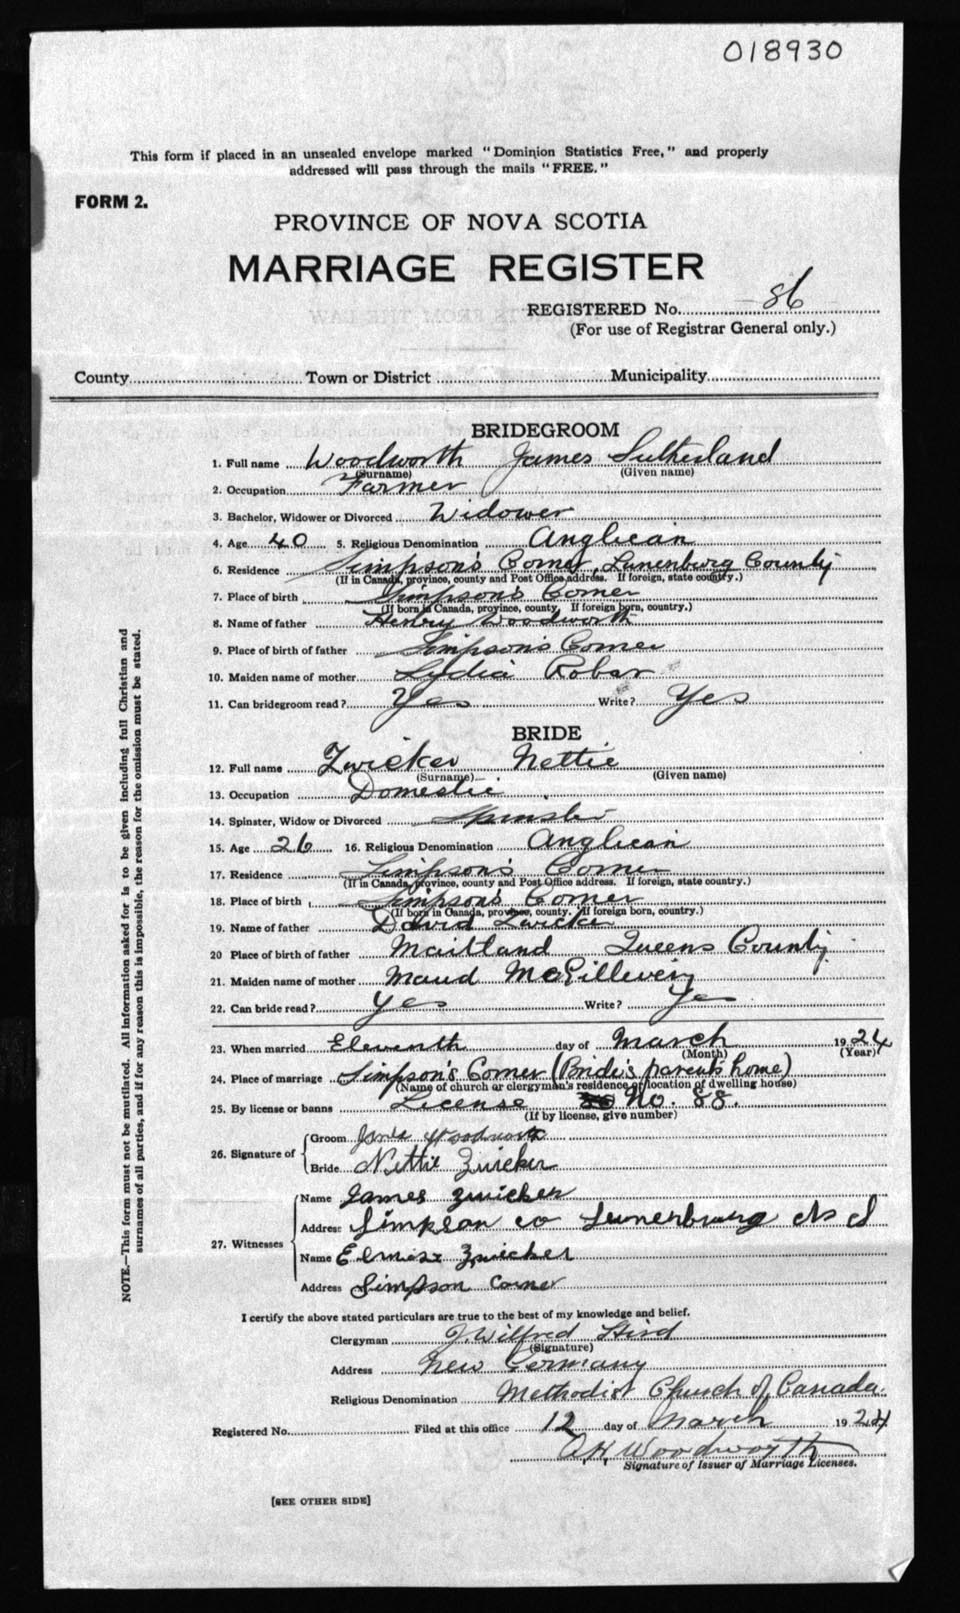 018930
This form if placed in an unsealed envelope marked "Dominion Statistics Free," and properly
addressed will pass through the mails "FREE."
FORM 2.
PROVINCE OF NOVA SCOTIA
MARRIAGE REGISTER
REGISTERED No. 86
(For use of Registrar General only.)
County Town or District Municipality
BRIDEGROOM
1. Full name Woodworth James Sutherland
(Surname) (Given name)
2. Occupation Farmer
3. Bachelor, Widower or Divorced Widower
4. Age 40 5. Religious Denomination Anglican
6. Residence Simpson's Corner, Lunenburg County
(If in Canada, province, county and Post Office address. If foreign, state country.)
7. Place of birth Simpson's Corner
(If born in Canada, province, county. If foreign born, country.)
8. Name of father Henry Woodworth
9. Place of birth of father Simpson's Corner
10. Maiden name of mother Lydia Robar
11. Can bridegroom read? Yes Write? Yes
BRIDE
12. Full name Zwicker Nettie
(Surname) (Given name)
13. Occupation Domestic
14. Spinster, Widow or Divorced Spinster
15. Age 26 16. Religious Denomination Anglican
17. Residence Simpson's Corner
(If in Canada, province, county and Post Office address. If foreign, state country.)
18. Place of birth Simpson's Corner
(If born in Canada, province, county. If foreign born, country.)
19. Name of father David Zwicker
20 Place of birth of father Maitland Queens County
21. Maiden name of mother Maud
22. Can bride read? Yes Write? Yes
23. When married Eleventh day of March 1924
(Month) (Year)
24. Place of marriage Simpson's Corner (Bride's parent's home)
(Name of church or clergyman's residence or location of dwelling house)
25. By license or banns License No. 88.
(If by license, give number)
26. Signature of
Groom Woodworth
Bride Nettie Zwicker
27. Witnesses
Name James Zwicker
Address Simpson co Lunenburg N S
Name Zwicker
Address Simpson Corner
I certify the above stated particulars are true to the best of my knowledge and belief.
Clergyman J. Wilfred
(Signature)
Address New Germany
Religious Denomination Methodist Church of Canada.
Registered No. Filed at this office 12 day of March 1924
A.H. Woodworth
Signature of Issuer of Marriage Licenses.
[SEE OTHER SIDE]
NOTE.—This form must not be mutilated. All information asked for is to be given including full Christian and
surnames of all parties, and if for any reason this is impossible, the reason for the omission must be stated.